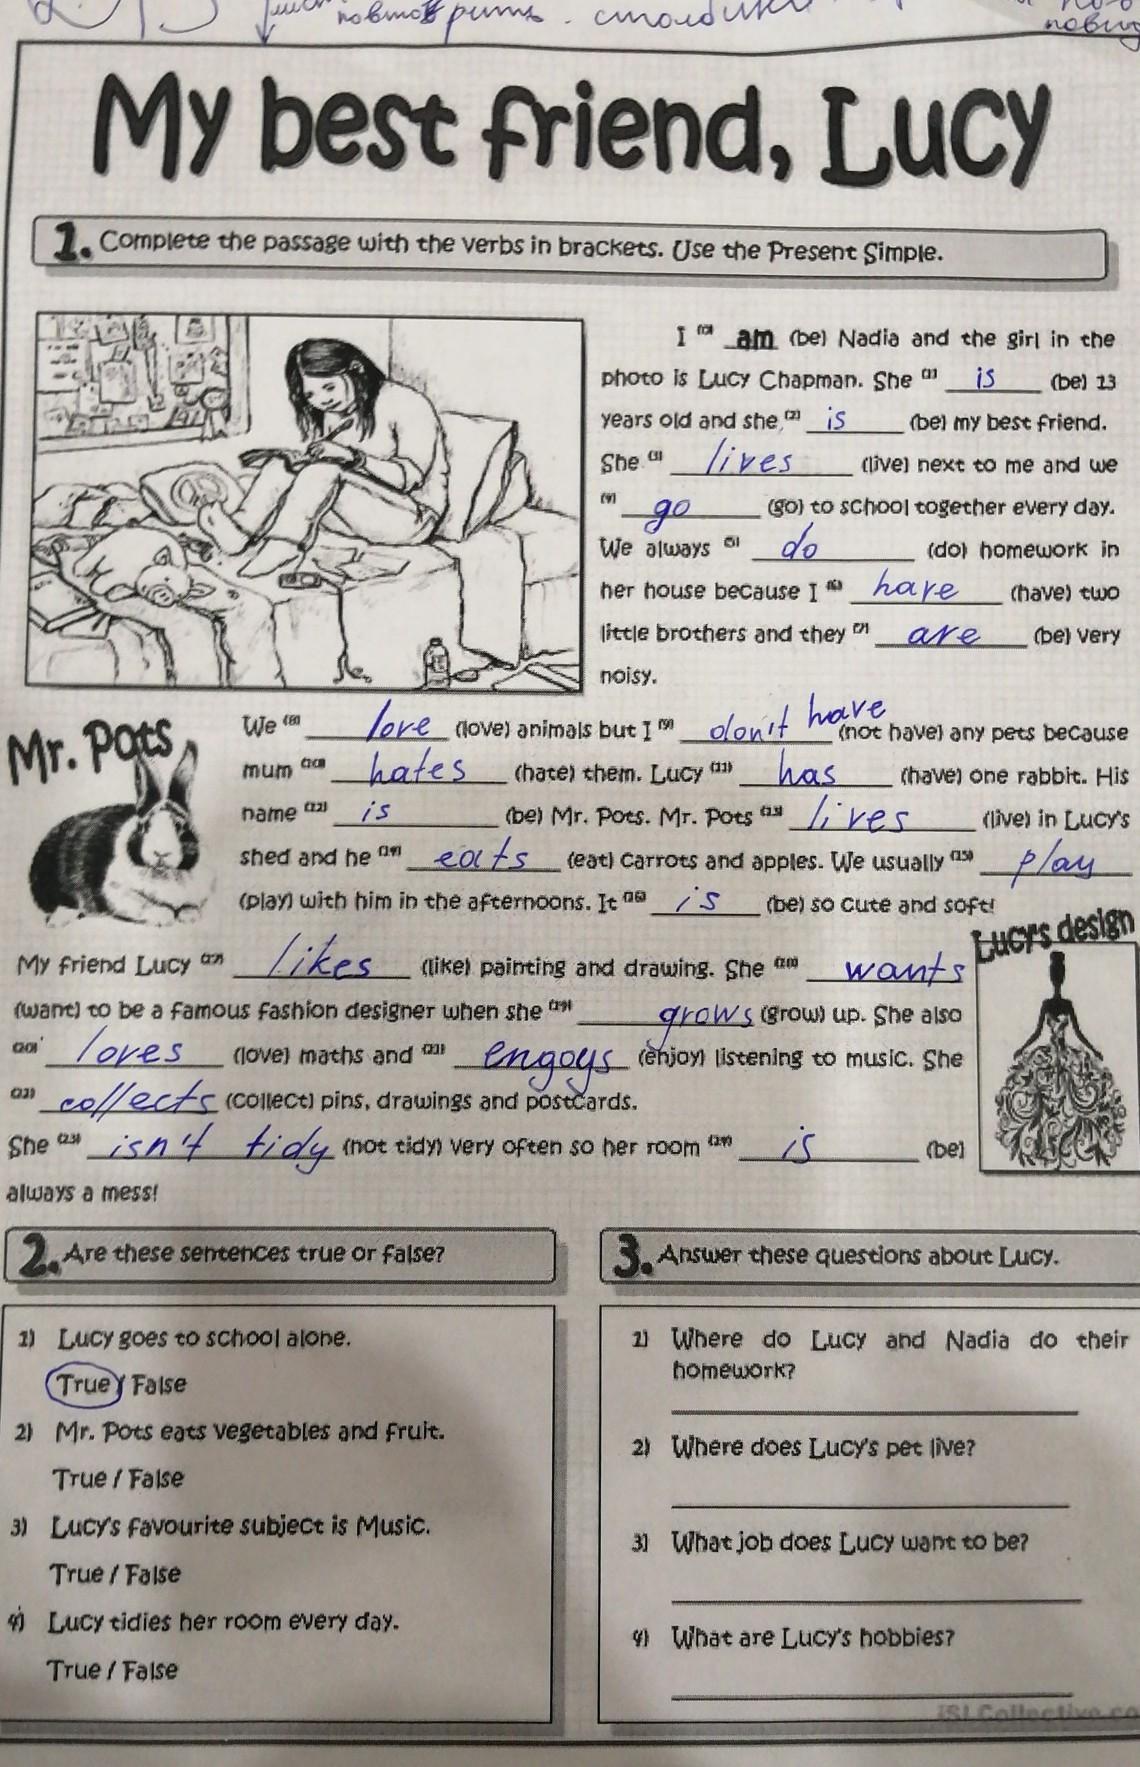 повторить столбики
My best friend, Lucy
1. Complete the passage with the verbs in brackets. Use the Present Simple.
I (0) am (be) Nadia and the girl in the
photo is Lucy Chapman. She (1) is (be) 13
years old and she (2) is (be) my best friend.
She (3) lives (live) next to me and we
(4) go (go) to school together every day.
We always (5) do (do) homework in
her house because I (6) have (have) two
little brothers and they (7) are (be) very
noisy.
Mr. Pots
We (8) love (love) animals but I (9) don't have (not have) any pets because
mum (10) hates (hate) them. Lucy (11) has (have) one rabbit. His
name (12) is (be) Mr. Pots. Mr. Pots (13) lives (live) in Lucy's
shed and he (14) eats (eat) carrots and apples. We usually (15) play
(play) with him in the afternoons. It (16) is (be) so cute and soft!
Lucy's design
My friend Lucy (17) likes (like) painting and drawing. She (18) wants
(want) to be a famous fashion designer when she (19) grows (grow) up. She also
(20) loves (love) maths and (21) engoys (enjoy) listening to music. She
(22) collects (collect) pins, drawings and postcards.
She (23) isn't tidy (not tidy) very often so her room (24) is (be)
always a mess!
2. Are these sentences true or false?
1) Lucy goes to school alone.
True / False
2) Mr. Pots eats vegetables and fruit.
True / False
3) Lucy's favourite subject is Music.
True / False
4) Lucy tidies her room every day.
True / False
3. Answer these questions about Lucy.
1) Where do Lucy and Nadia do their
homework?
2) Where does Lucy's pet live?
3) What job does Lucy want to be?
4) What are Lucy's hobbies?
iSLCollective.co